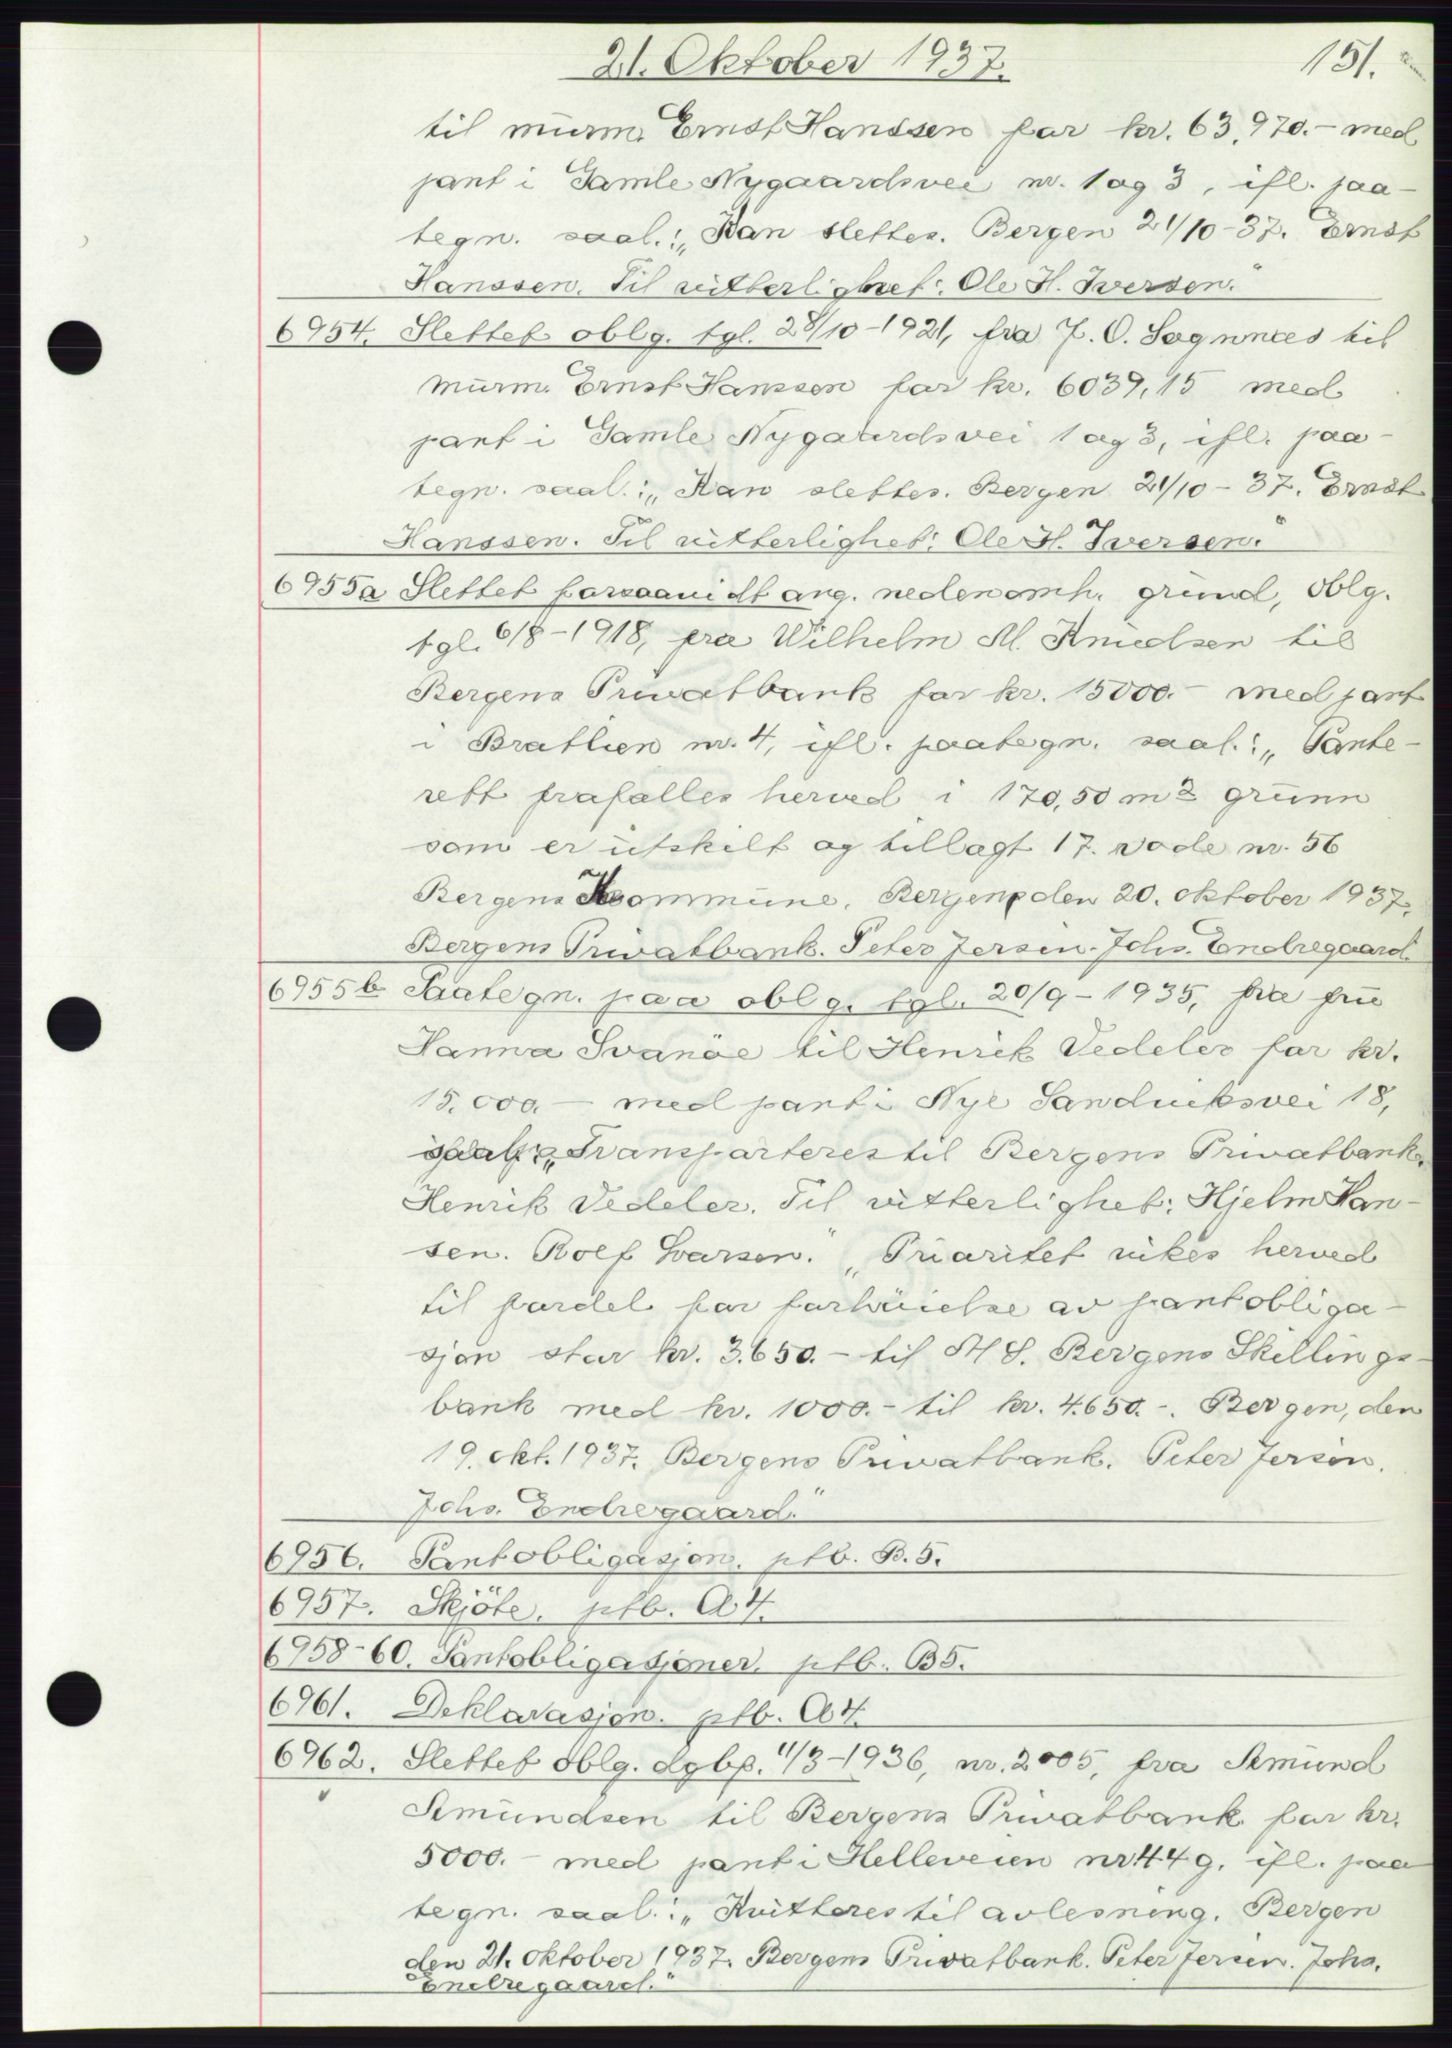 21. Oktober 1937.
151.
til murm. Ernst Hanssen for kr. 63,970.- med
pant i Gamle Nygaardsvei nr. 1 og 3, ifl. paa-
tegn. saal.: „Kan slettes. Bergen 21/10-37. Ernst
Hanssen. Til vitterlighet: Ole H. Iversen."
6954. Slettet oblg. tgl. 28/10-1921, fra J. O. Sognnæs til
murm. Ernst Hanssen for kr. 6039,15 med
pant i Gamle Nygaardsvei 1 og 3, ifl. paa-
tegn. saal.: „Kan slettes. Bergen 21/10-37. Ernst
Hanssen. Til vitterlighet: Ole H. Iversen."
6955a Slettet forsaavidt ang. nedenomh. grund, oblg.
tgl. 6/8-1918, fra Wilhelm M. Knudsen til
Bergens Privatbank for kr. 15000.- med pant
i Bratlien nr. 4, ifl. paategn. saal.: „Pante-
rett frafalles herved i 170,50 m2 grunn
som er utskilt og tillagt 17. rode nr. 56
Bergens Kommune. Bergen, den 20. oktober 1937.
Bergens Privatbank. Peter Jersin. Johs. Endregaard.
6955b Paategn. paa oblg. tgl. 20/9-1935, fra frue
Hanna Svanöe til Henrik Vedeler for kr.
15.000.- med pant i Nye Sandviksvei 18,
„Transporteres til Bergens Privatbank.
Henrik Vedeler. Til vitterlighet: Hjelm Han-
sen. Rolf Larsen." „Prioritet vikes herved
til fordel for forhøielse av pantobliga-
sjon stor kr. 3.650.- til A/S. Bergens Skillings-
bank med kr. 1000.- til kr. 4.650.-. Bergen, den
19. okt. 1937. Bergens Privatbank. Peter Jersin.
Johs. Endregaard."
6956. Pantobligasjon. ptb. B. 5.
6957. Skjöte. ptb. A 4.
6958-60. Pantobligasjoner. ptb. B5.
6961. Deklarasjon. ptb. A 4.
6962. Slettet oblg. dgbf. 11/3-1936, nr. 2005, fra Amund
Amundsen til Bergens Privatbank for kr.
5000.- med pant i Helleveien nr 44 g. ifl. paa
tegn. saal.: „Kvitteres til avlesning. Bergen
den 21. oktober 1937. Bergens Privatbank. Peter Jersin. Johs.
Endregaard."